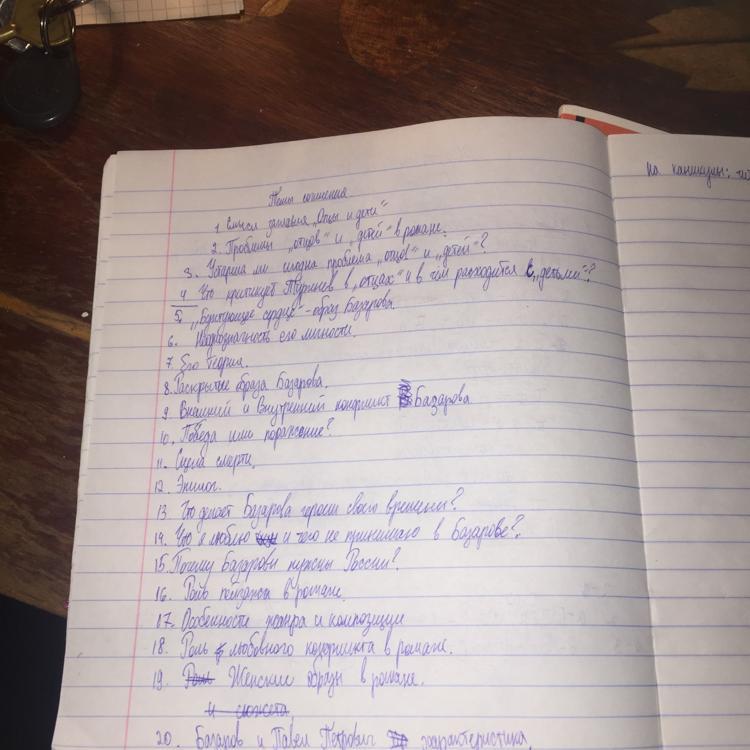 Темы сочинения
1. Смысл заглавия „Отцы и дети“
2. Проблемы „отцов“ и „детей“ в романе.
3. Устарела ли сегодня проблема „отцов“ и „детей“?
4 Что критикует Тургенев в „отцах“ и в чём расходится с „детьми“?
5. „Бунтующее сердце“ - образ Базарова.
6. Неоднозначность его личности.
7. Его теория.
8. Раскрытие образа Базарова.
9. Внешний и внутренний конфликт Базарова
10. Победа или поражение?
11. Сцена смерти.
12. Эпилог.
13. Что делает Базарова героем своего времени?
14. Что я люблю и чего не принимаю в Базарове?
15. Почему Базаровы нужны России?
16. Роль пейзажа в романе.
17. Особенности жанра и композиции
18. Роль любовного конфликта в романе.
19. Роль Женские образы в романе.
и сюжета
20. Базаров и Павел Петрович характеристика.
На каникулы: